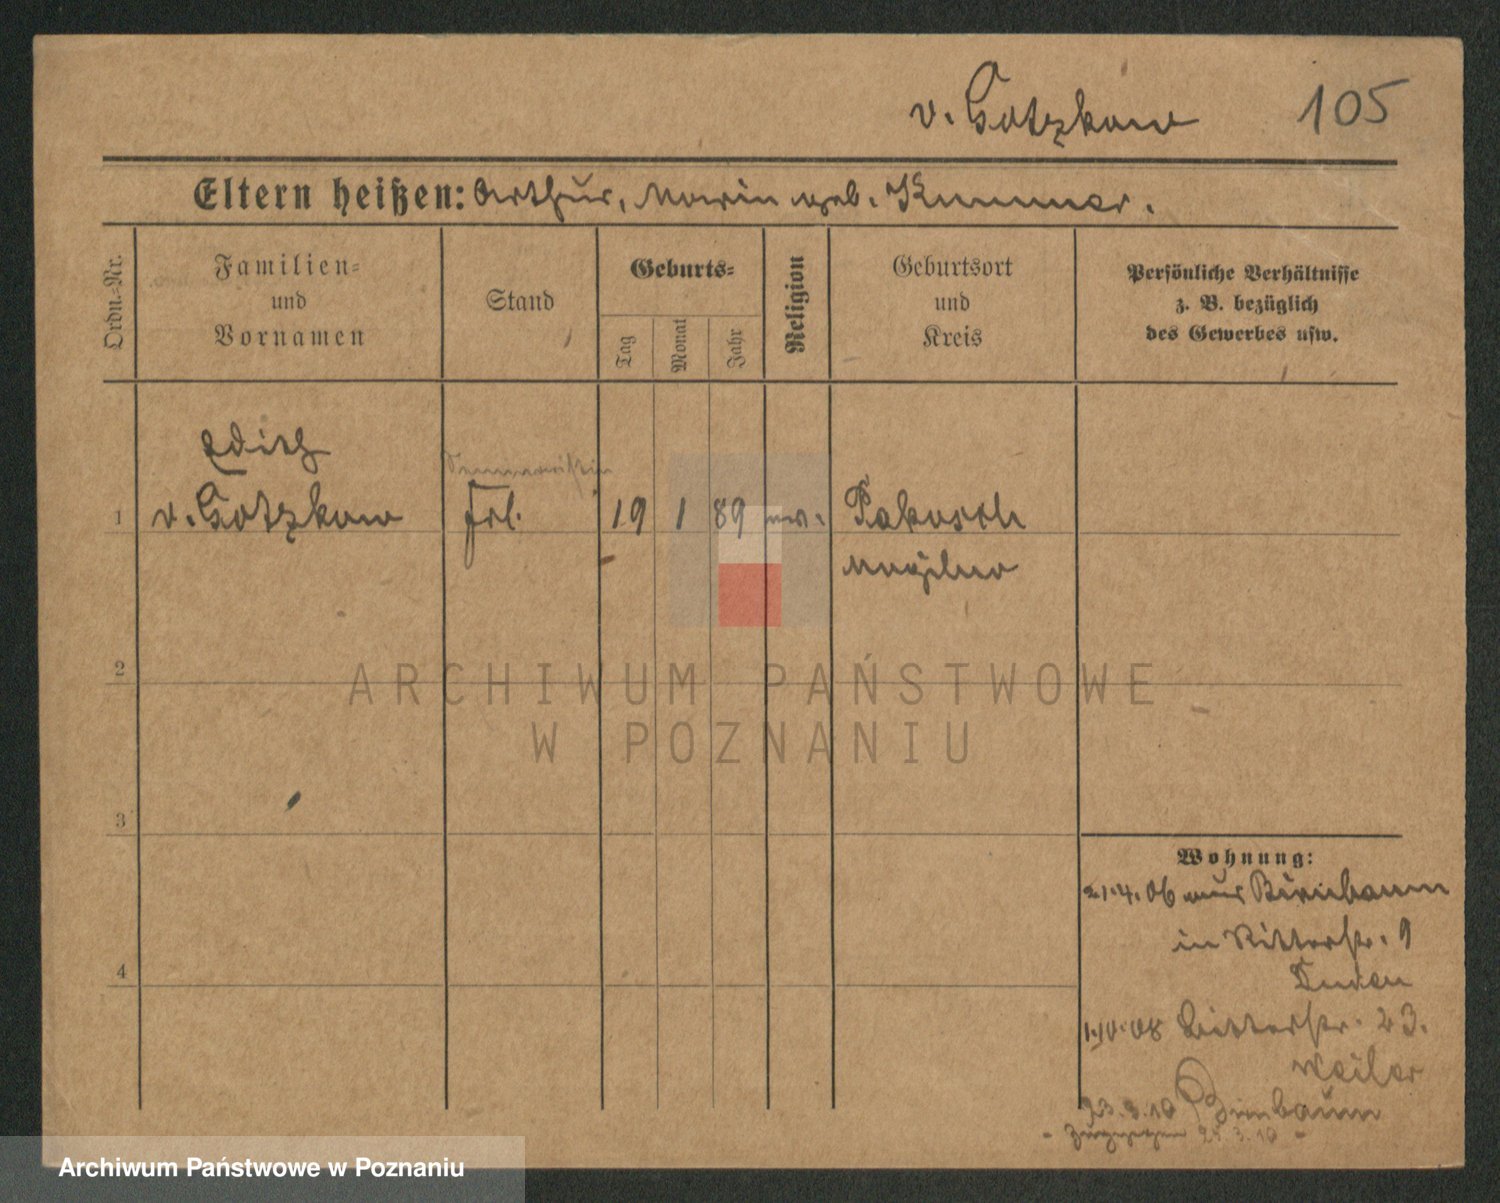 v. Gotzkow 105
Eltern heißen: Arthur, Marie geb. Kummer.
Ordn.=Nr.
Familien=
und
Vornamen
Stand
Geburts=
Tag
Monat
Jahr
Religion
Geburtsort
und
Kreis
Persönliche Verhältnisse
z. B. bezüglich
des Gewerbes usw.
Edith
Seminaristin
1 v. Gotzkow Frl. 19 1 89 ev. Pakosch
Mogilno
2
ARCHIWUM PAŃSTWOWE
W POZNANIU
3
Wohnung:
21.4.06 aus Birnbaum
in Ritterstr. 9
4
1.10.08 Ritterstr. 23.
Weiler
23.3.10 Birnbaum
- zugezogen 25.3.10 -
Archiwum Państwowe w Poznaniu